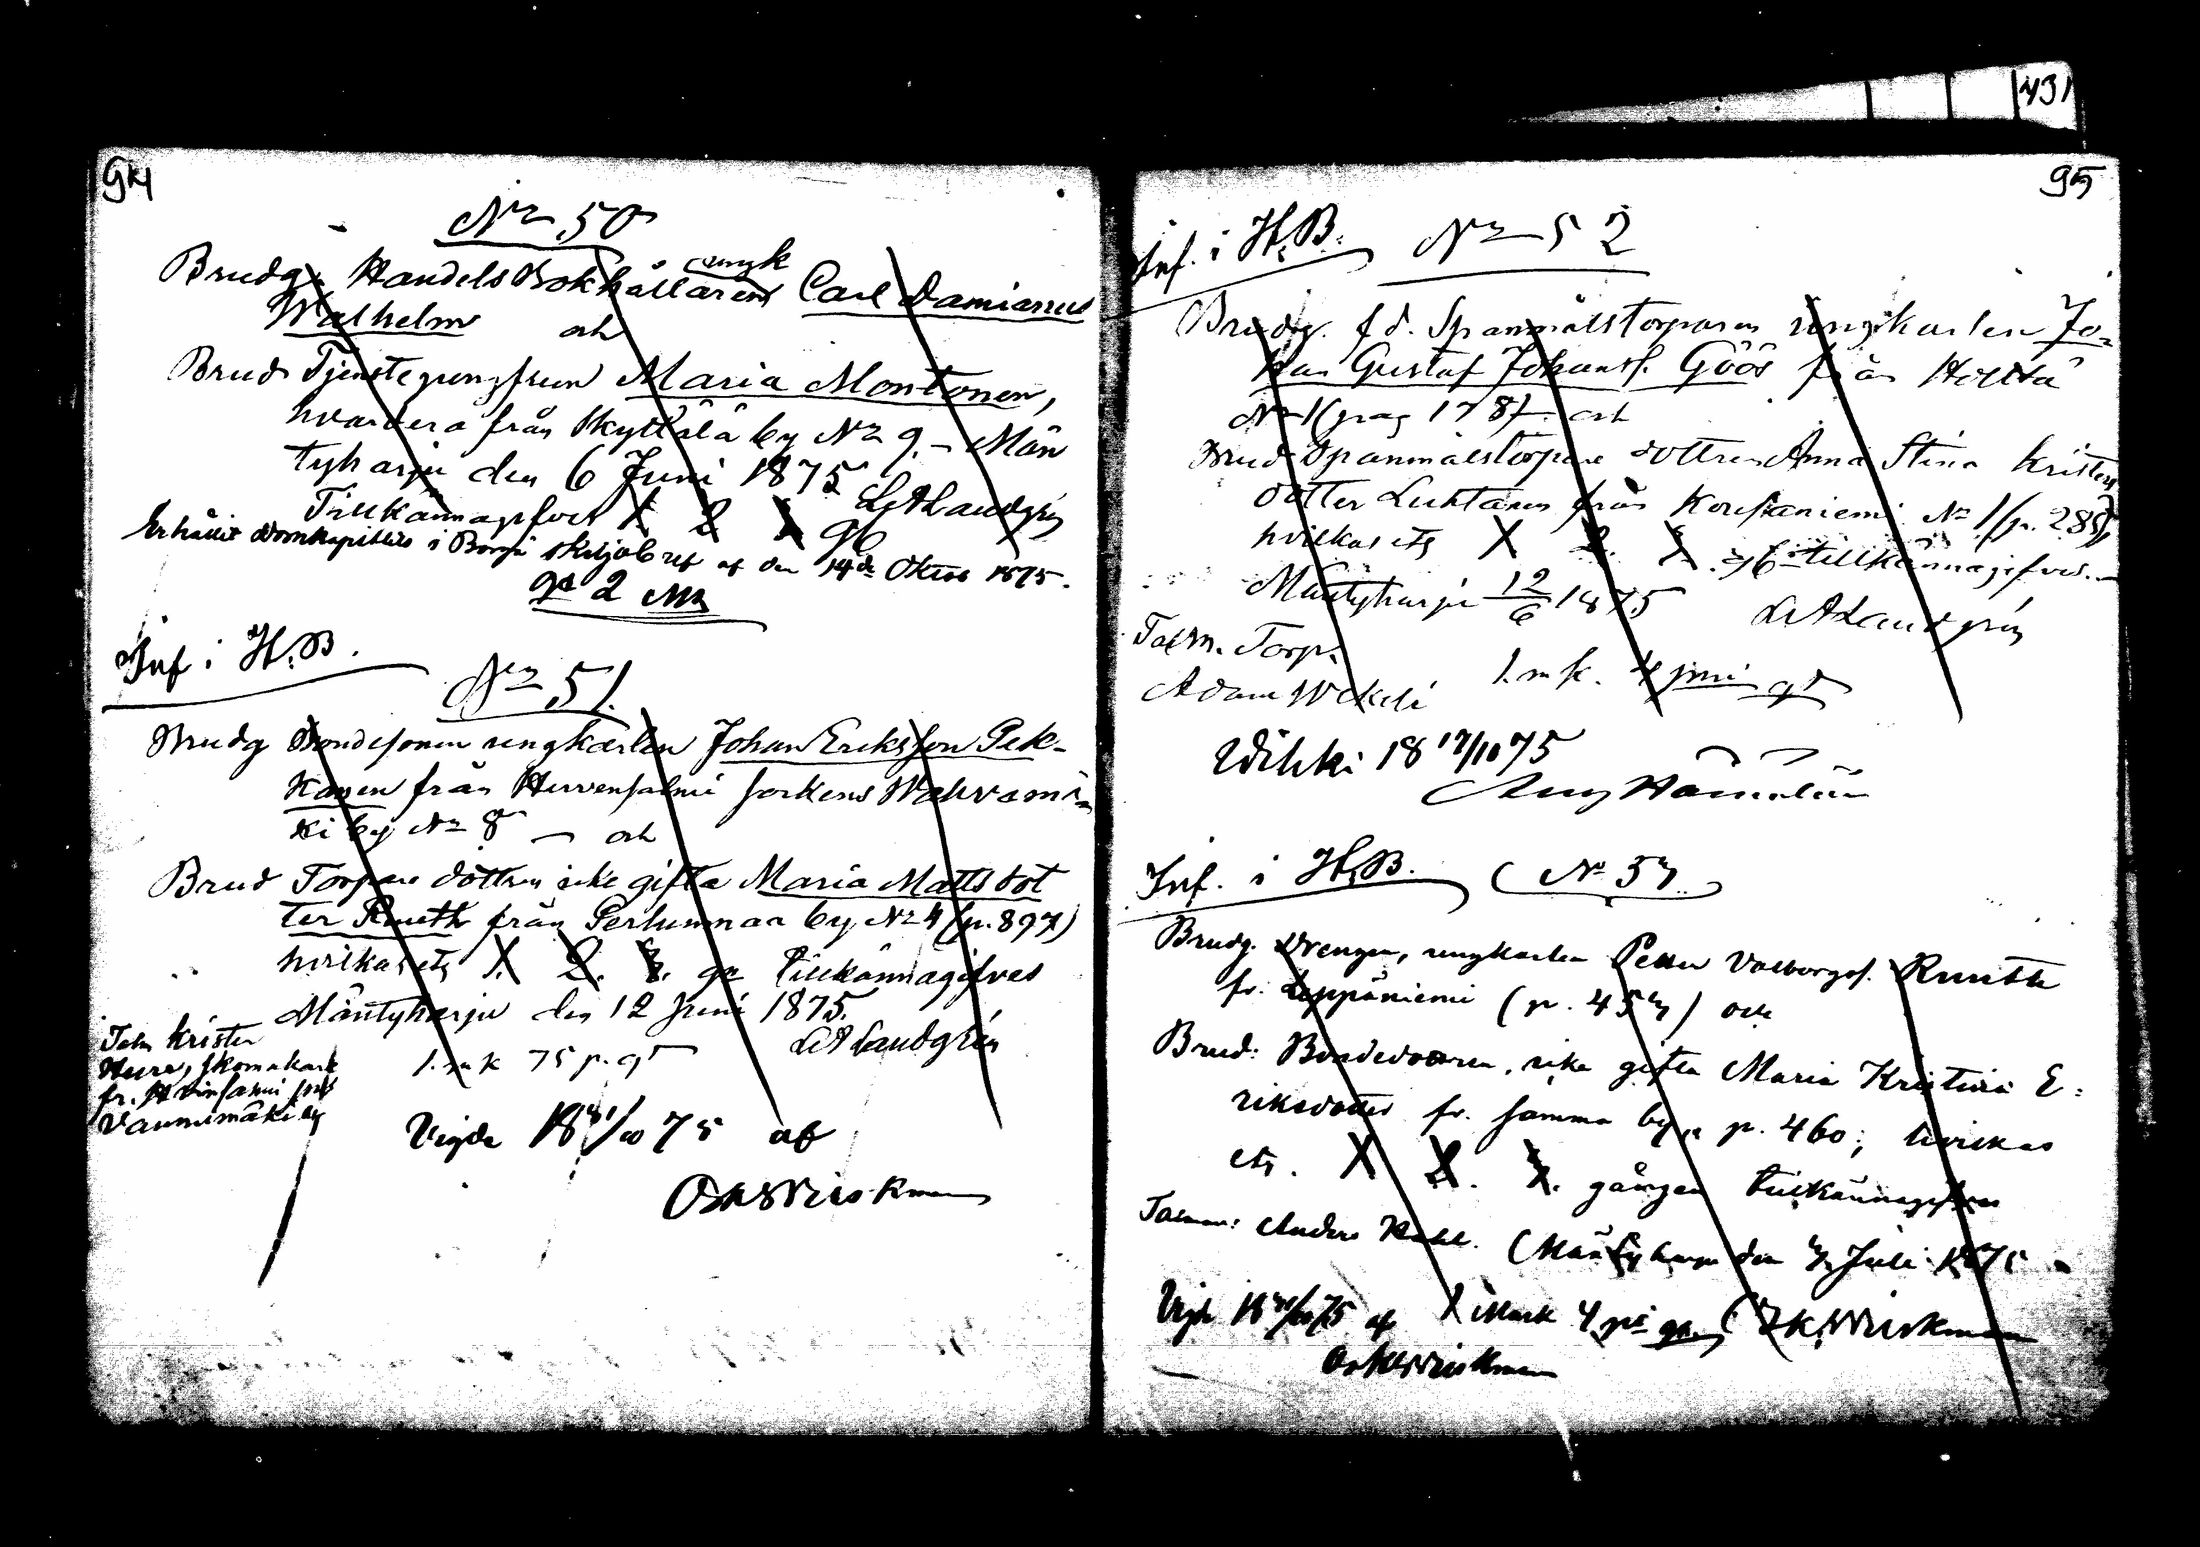 94
No 50
Brudg. Handels Bokhållaren ungk Carl Damianus
Walhelm och
Brud Tjenstejungfrun Maria Montonen,
hvardera från Kyttälä by No 9. – Män
tyharju den 6 Juni 1875
Tillkännagifvet 1 2 3 gg LALaudgrén
Erhållit Domkapitlets i Borgå skiljobref af den 14de Oktob 1875.
gd 2 Mk
Inf i H.B.
No 51.
Brudg Bondesonen ungkarlen Johan Eriksson Pek-
kanen från Hirvensalmi sockens Wahvamä-
ki by No 8 – och
Brud Torpare dottren icke gifta Maria Mattsdot
ter Knuth från Pertunmaa by No 4 (p. 897)
hvilkas etg 1. 2. 3. gg tillkännagifves
Mäntyharju den 12 Juni 1875.
LALaudgrén
Talm Krister
skomakare
fr. Hirvinsalmi sock
by
1. mk 75 p. gd
Vigde 18 31/10 75 af
OskWriskman
431
95
Inf. i H.B. No 52
Brudg. f d. Spannmålstorparen ungkarlen Jo-
han Gustaf Johanss. Göös från Holtta
No 1 (pag 178) och
Brud Spanmålstorpare dottren Anna Stina Kristers
dotter Luhtanen från Korpianiemi No 1 (p. 285),
hvilkas etg 1 2. 3. gg tillkännagifves. –
Mäntyharju 12/6 1875 LALaudgrén
Talm. Torp.
Adam
1. mk. 4 pni gd
Wihki 18 17/10 75
Aug Hämäläin
Inf. i H.B. No 53.
Brudg. Drengen, ungkarlen Petter Valborgs. Knuth
fr. Leppäniemi (p. 453) och
Brud: Bondedottren, icke gifta Maria Kristina E:
riksdotter fr. samma by, p. 460; hvilkas
etg. 1 2. 3. gången tillkännagifves
Talman: Anders (Mäntyharju den 3 Juli 1875
Vigde 18 31/10 75 af 1 Mark 4 pi gd OskWriskman
OskWriskman